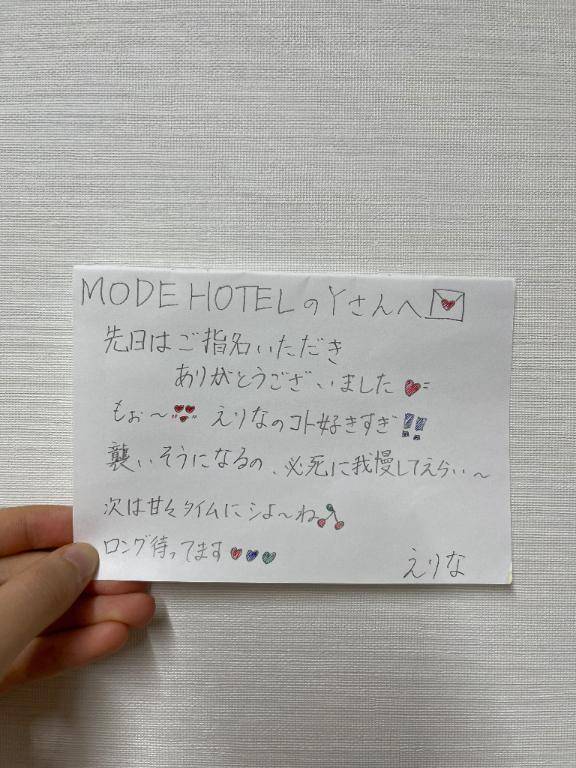 MODE HOTELのYさんへ
先日はご指名いただき
ありがとうございました
もぉ〜 えりなのコト好きすぎ!!
襲いそうになるの、必死に我慢してえらい〜
次は甘々タイムにシよ〜ね
ロング待ってます
えりな